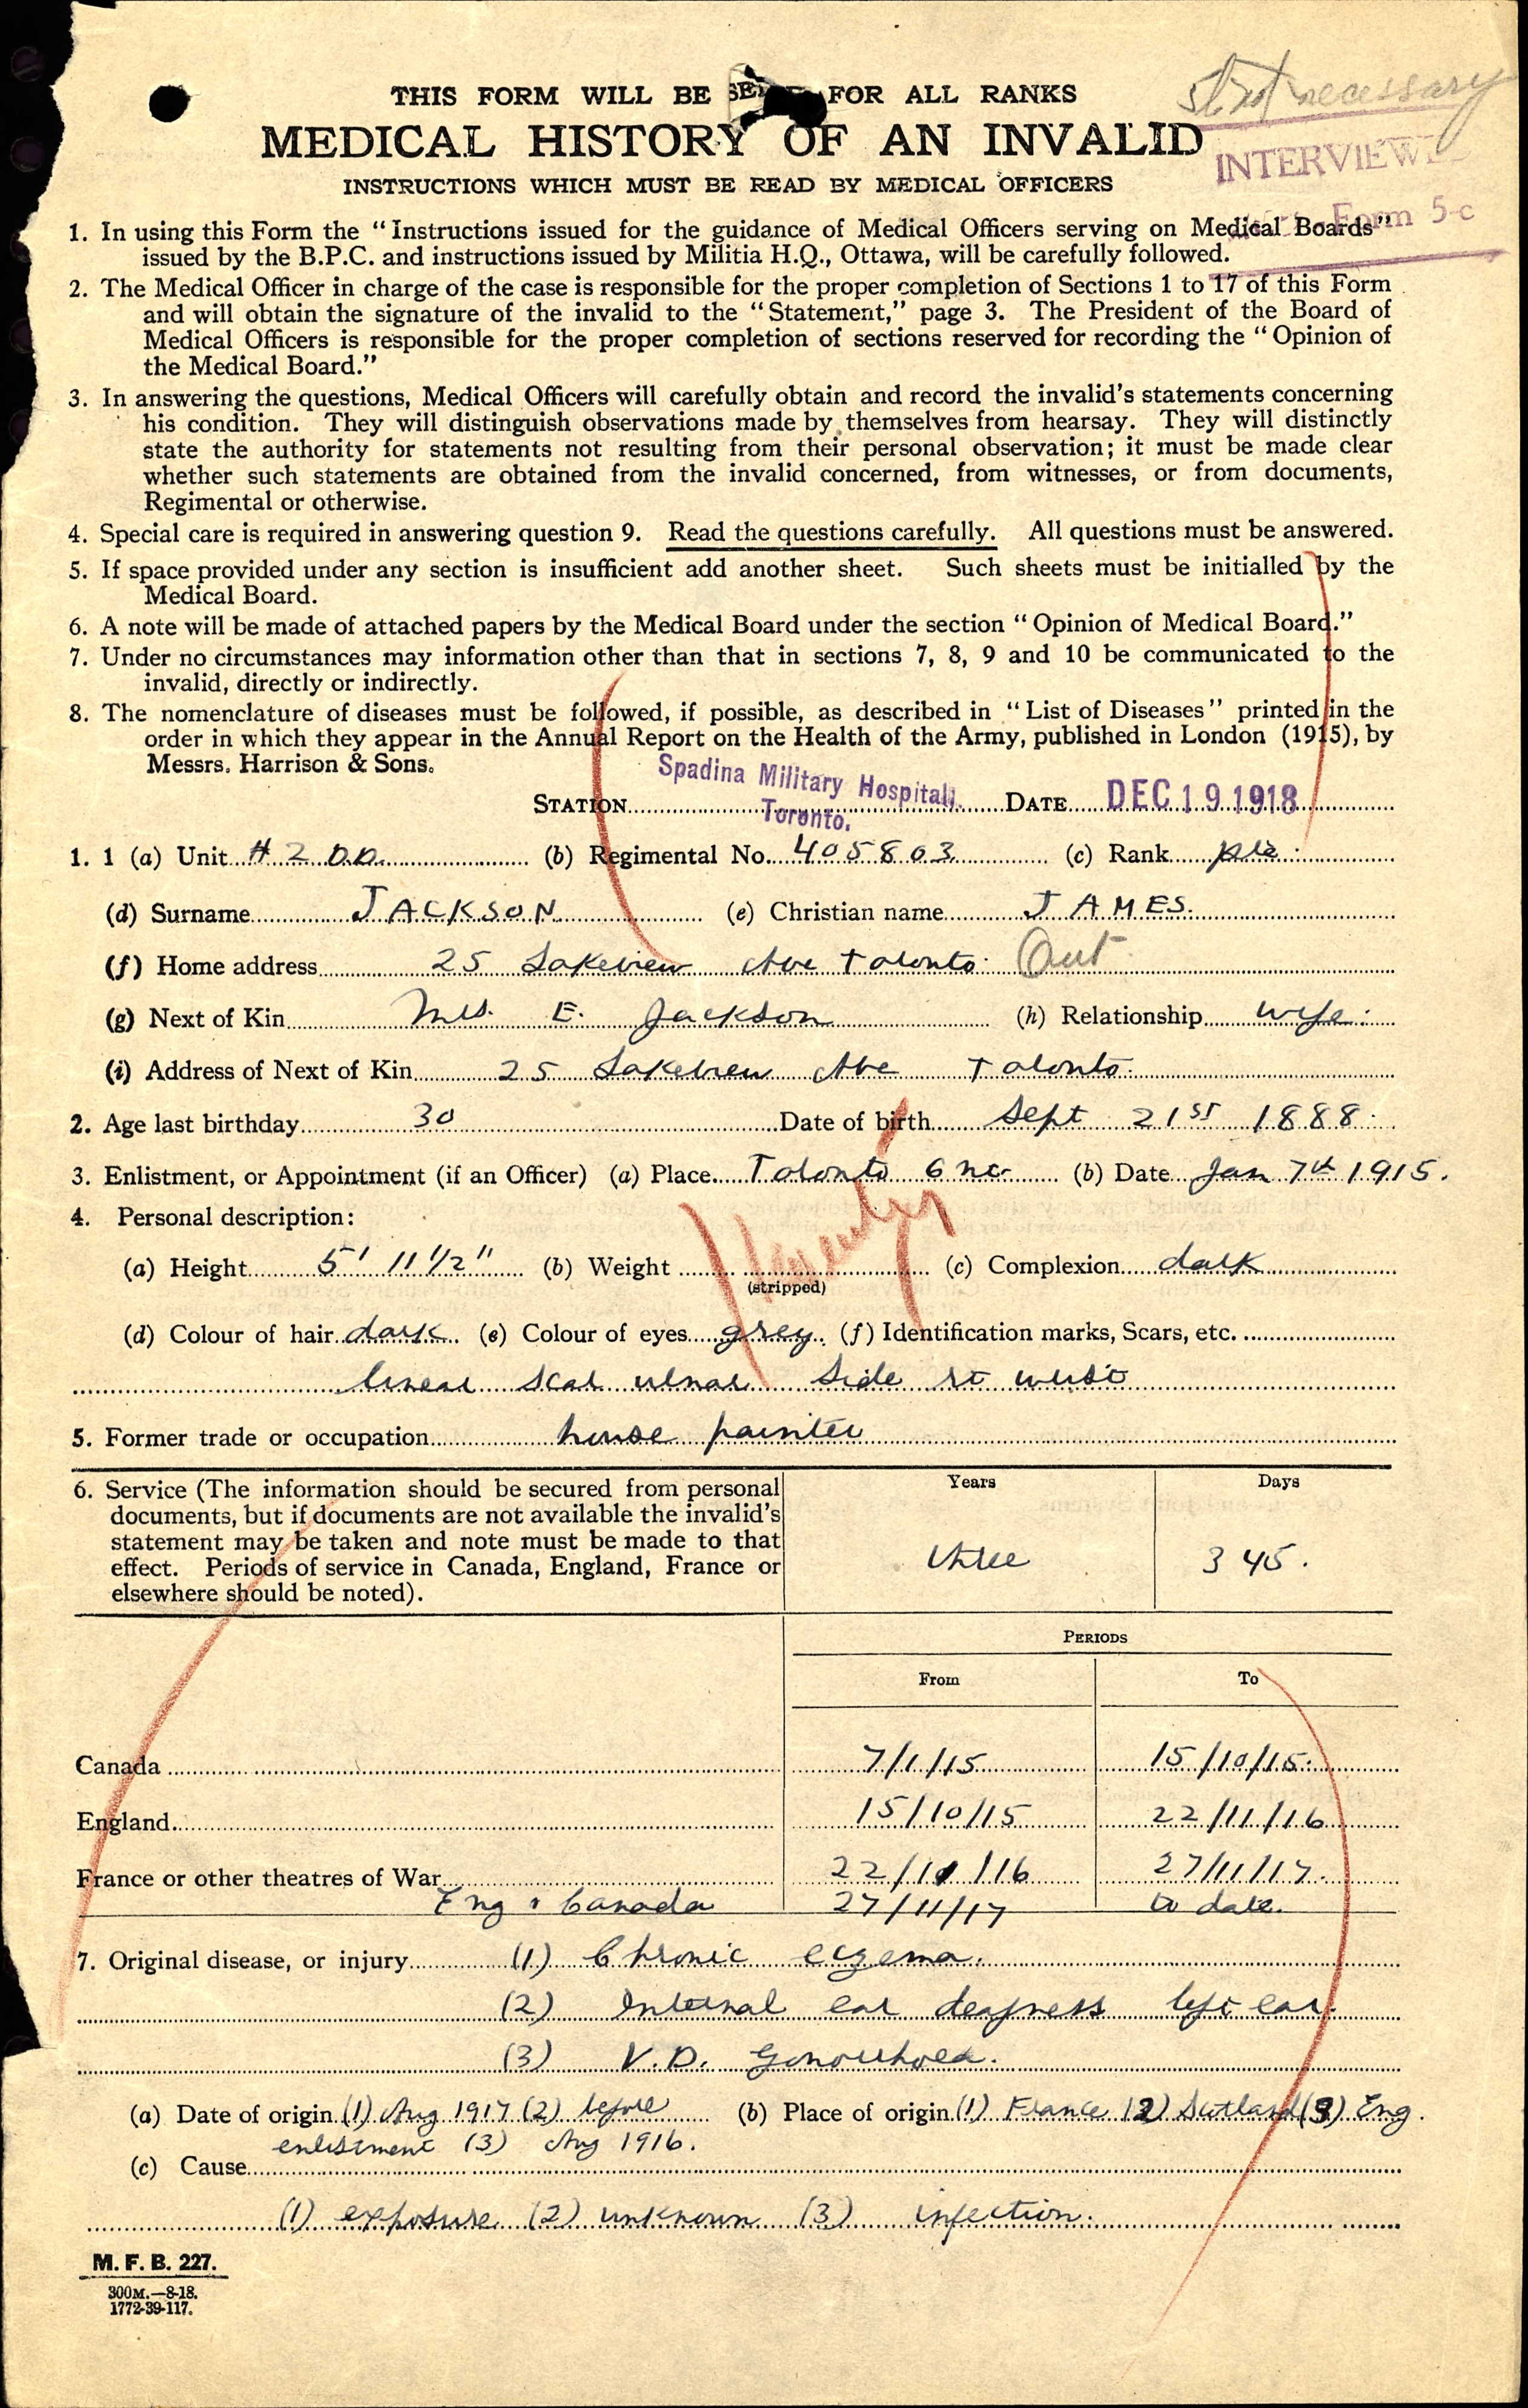 THIS FORM WILL BE FOR ALL RANKS
MEDICAL HISTORY OF AN INVALID
INSTRUCTIONS WHICH MUST BE READ BY MEDICAL OFFICERS
not necessary
INTERVIEW
Form 5-c
1. In using this Form the “Instructions issued for the guidance of Medical Officers serving on Medical Boards”
issued by the B.P.C. and instructions issued by Militia H.Q., Ottawa, will be carefully followed.
2. The Medical Officer in charge of the case is responsible for the proper completion of Sections 1 to 17 of this Form
and will obtain the signature of the invalid to the “Statement,” page 3. The President of the Board of
Medical Officers is responsible for the proper completion of sections reserved for recording the “Opinion of
the Medical Board.”
3. In answering the questions, Medical Officers will carefully obtain and record the invalid's statements concerning
his condition. They will distinguish observations made by themselves from hearsay. They will distinctly
state the authority for statements not resulting from their personal observation; it must be made clear
whether such statements are obtained from the invalid concerned, from witnesses, or from documents,
Regimental or otherwise.
4. Special care is required in answering question 9. Read the questions carefully. All questions must be answered.
5. If space provided under any section is insufficient add another sheet. Such sheets must be initialled by the
Medical Board.
6. A note will be made of attached papers by the Medical Board under the section “Opinion of Medical Board.”
7. Under no circumstances may information other than that in sections 7, 8, 9 and 10 be communicated to the
invalid, directly or indirectly.
8. The nomenclature of diseases must be followed, if possible, as described in “List of Diseases” printed in the
order in which they appear in the Annual Report on the Health of the Army, published in London (1915), by
Messrs. Harrison & Sons.
STATION Spadina Military Hospital, Toronto. DATE DEC 19 1918
1. 1 (a) Unit # 2 D.D. (b) Regimental No. 405803 (c) Rank pte
(d) Surname JACKSON (e) Christian name JAMES.
(f) Home address 25 Lakeview Ave Toronto Ont
(g) Next of Kin Mrs. E. Jackson (h) Relationship wife.
(i) Address of Next of Kin 25 Lakeview Ave Toronto.
2. Age last birthday 30 Date of birth Sept 21st 1888.
3. Enlistment, or Appointment (if an Officer) (a) Place Toronto (b) Date Jan 7th 1915.
4. Personal description:
(a) Height 5' 11 1/2" (b) Weight (c) Complexion dark
(stripped)
(d) Colour of hair dark (e) Colour of eyes grey. (f) Identification marks, Scars, etc.
linear scar ulnar side rt wrist
5. Former trade or occupation house painter
6. Service (The information should be secured from personal
documents, but if documents are not available the invalid's
statement may be taken and note must be made to that
effect. Periods of service in Canada, England, France or
elsewhere should be noted).
Years Days
three 345.
PERIODS
From To
Canada 7/1/15 15/10/15.
England 15/10/15 22/11/16
France or other theatres of War 22/11/16 27/11/17.
Eng & Canada 27/11/17 to date.
7. Original disease, or injury (1) Chronic eczema.
(2) Internal ear deafness left ear.
(3) V.D. Gonorrhoea.
(a) Date of origin (1) Aug 1917 (2) before (b) Place of origin (1) France (2) Scotland (3) Eng.
enlistment (3) Aug 1916.
(c) Cause
(1) exposure (2) unknown (3) infection.
M. F. B. 227.
300M.—8-18.
1772-39-117.